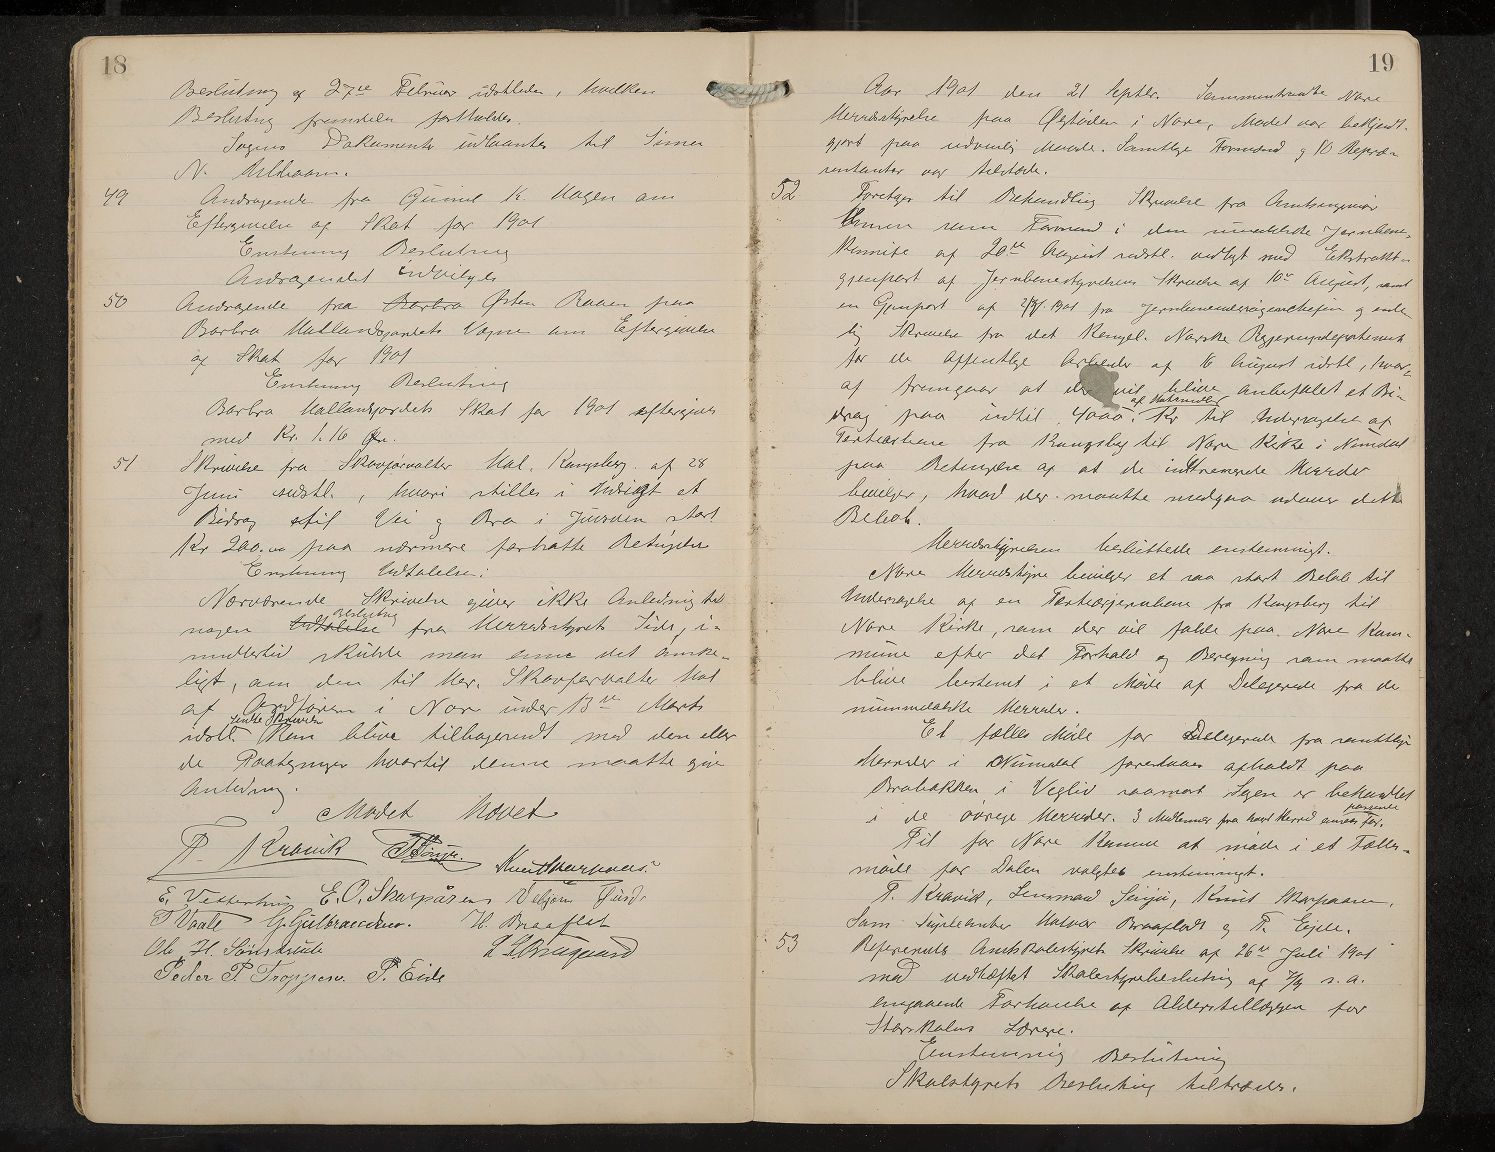 18
Beslutning af 27de Februar idstleden, hvilken
Beslutning fremdeles fastholdes.
Sagens Dokumenter udlaantes til Simen
N.
49 Andragende fra Gunild K. Hagen om
Eftergivelse af Skat for 1901
Enstemmig Beslutning
Andragendet indvilges
50 Andragende fra Barbro Østen Raaen paa
Barbro Hallandsjordets Vegne om Eftergivelse
af Skat for 1901
Enstemmig Beslutning
Barbro Hallandsjordets Skat for 1901 eftergives
med Kr. 1.16 Øre.
51 Skrivelse fra Skovforvalter Kongsberg af 28
Juni sidstl., hvori stilles i Udsigt et
Bidrag til Vei og Bro i stort
Kr 200.00 paa nærmere forhatte Betingelser
Enstemmig Udtalelse:
Nærværende Skrivelse giver ikke Anledning til
nogen Udtalelse Beslutning fra Herredsstyrets Side, i-
midlertid skulde man anse det ønske-
ligt, om den til Hr. Skovforvalter
af Andføren i Nore under 13de Marts
idstl. sendte Skrivelse kan blive tilbagesendt med den eller
de Paategninger hvortil denne maatte give
Anledning.
Mødet hævet
T. Kravik
Knut Skarpaas.
E. Vetterhus E. O. Skarpaasen Vebjørn
T Vaale G. Gulbrandsen. H. Braaflat
Ole H. Sønsterude
Peder P. Troppen. P. Eide
19
Aar 1901 den 21 Septbr. Sammentraadte Nore
Herredsstyrelse paa Øigaarden i Nore, Mødet var bekjendt-
gjort paa udvanlig Maade. Samtlige Formænd og 10 Repræ-
sentanter var tilstede.
52 Foretoges til Behandling Skrivelse fra Amtsingeniør
som Formand i den numedalske Jernbane-
komite af 20de August sidstl. vedlagt med Ekstrakt-
gjenpart af Jernbanestyrelsens Skrivelse af 10de August, samt
en Gjenpart af 1901 fra Jernbaneundersøgelseschefen og ende-
lig Skrivelse fra det Kongel. Norske Regjeringsdepartement
for de offentlige Arbeider af 16 August idstl, hvor-
af fremgaar at der vil blive anbefalet et Bi-
drag paa indtil 4000. Kr af Statsmidler til Undersøgelse af
Tertiærbane fra Kongsberg til Nore Kirke i Numedal
paa Betingelse af at de interesserede Herreder
bevilger, hvad der maatte medgaa udover dette
Beløb.
Herredsstyrelsen besluttede enstemmigt.
Nore Herredsstyre bevilger et saa stort Beløb til
Undersøgelse af en Tertiærjernbane fra Kongsberg til
Nore Kirke, som der vil falde paa Nore Kom-
mune efter det Forhold og Beregning som maatte
blive bestemt i et Møde af Delegerede fra de
nummedalske Herreder.
Et fælles Møde for Delegerede fra samtlige
Herreder i Numedal foreslaaes afholdt paa
Brobakken i Vegli saasnart Sagen er behandlet
i de øvrige Herreder. 3 Medlemmer fra hvert Herred ansees passende for.
Til for Nore Komune at møde i et Fælles-
møde for Dalen valgtes enstemmigt.
T. Kravik, Lensmand Juvjø, Knut Skarpaasen,
Som Suppleanter Halvor Braaflodt og T. Eide.
53 Refereredes Amtsskolestyrets Skrivelse af 26de Juli 1901
med vedhæftet Skolestyrebeslutning af 7/9 s.a.
angaaende Forhøielse af Alderstillæggene for
Storskolens Lærere.
Enstemmig Beslutning
Skolestyrets Beslutning tiltrædes.